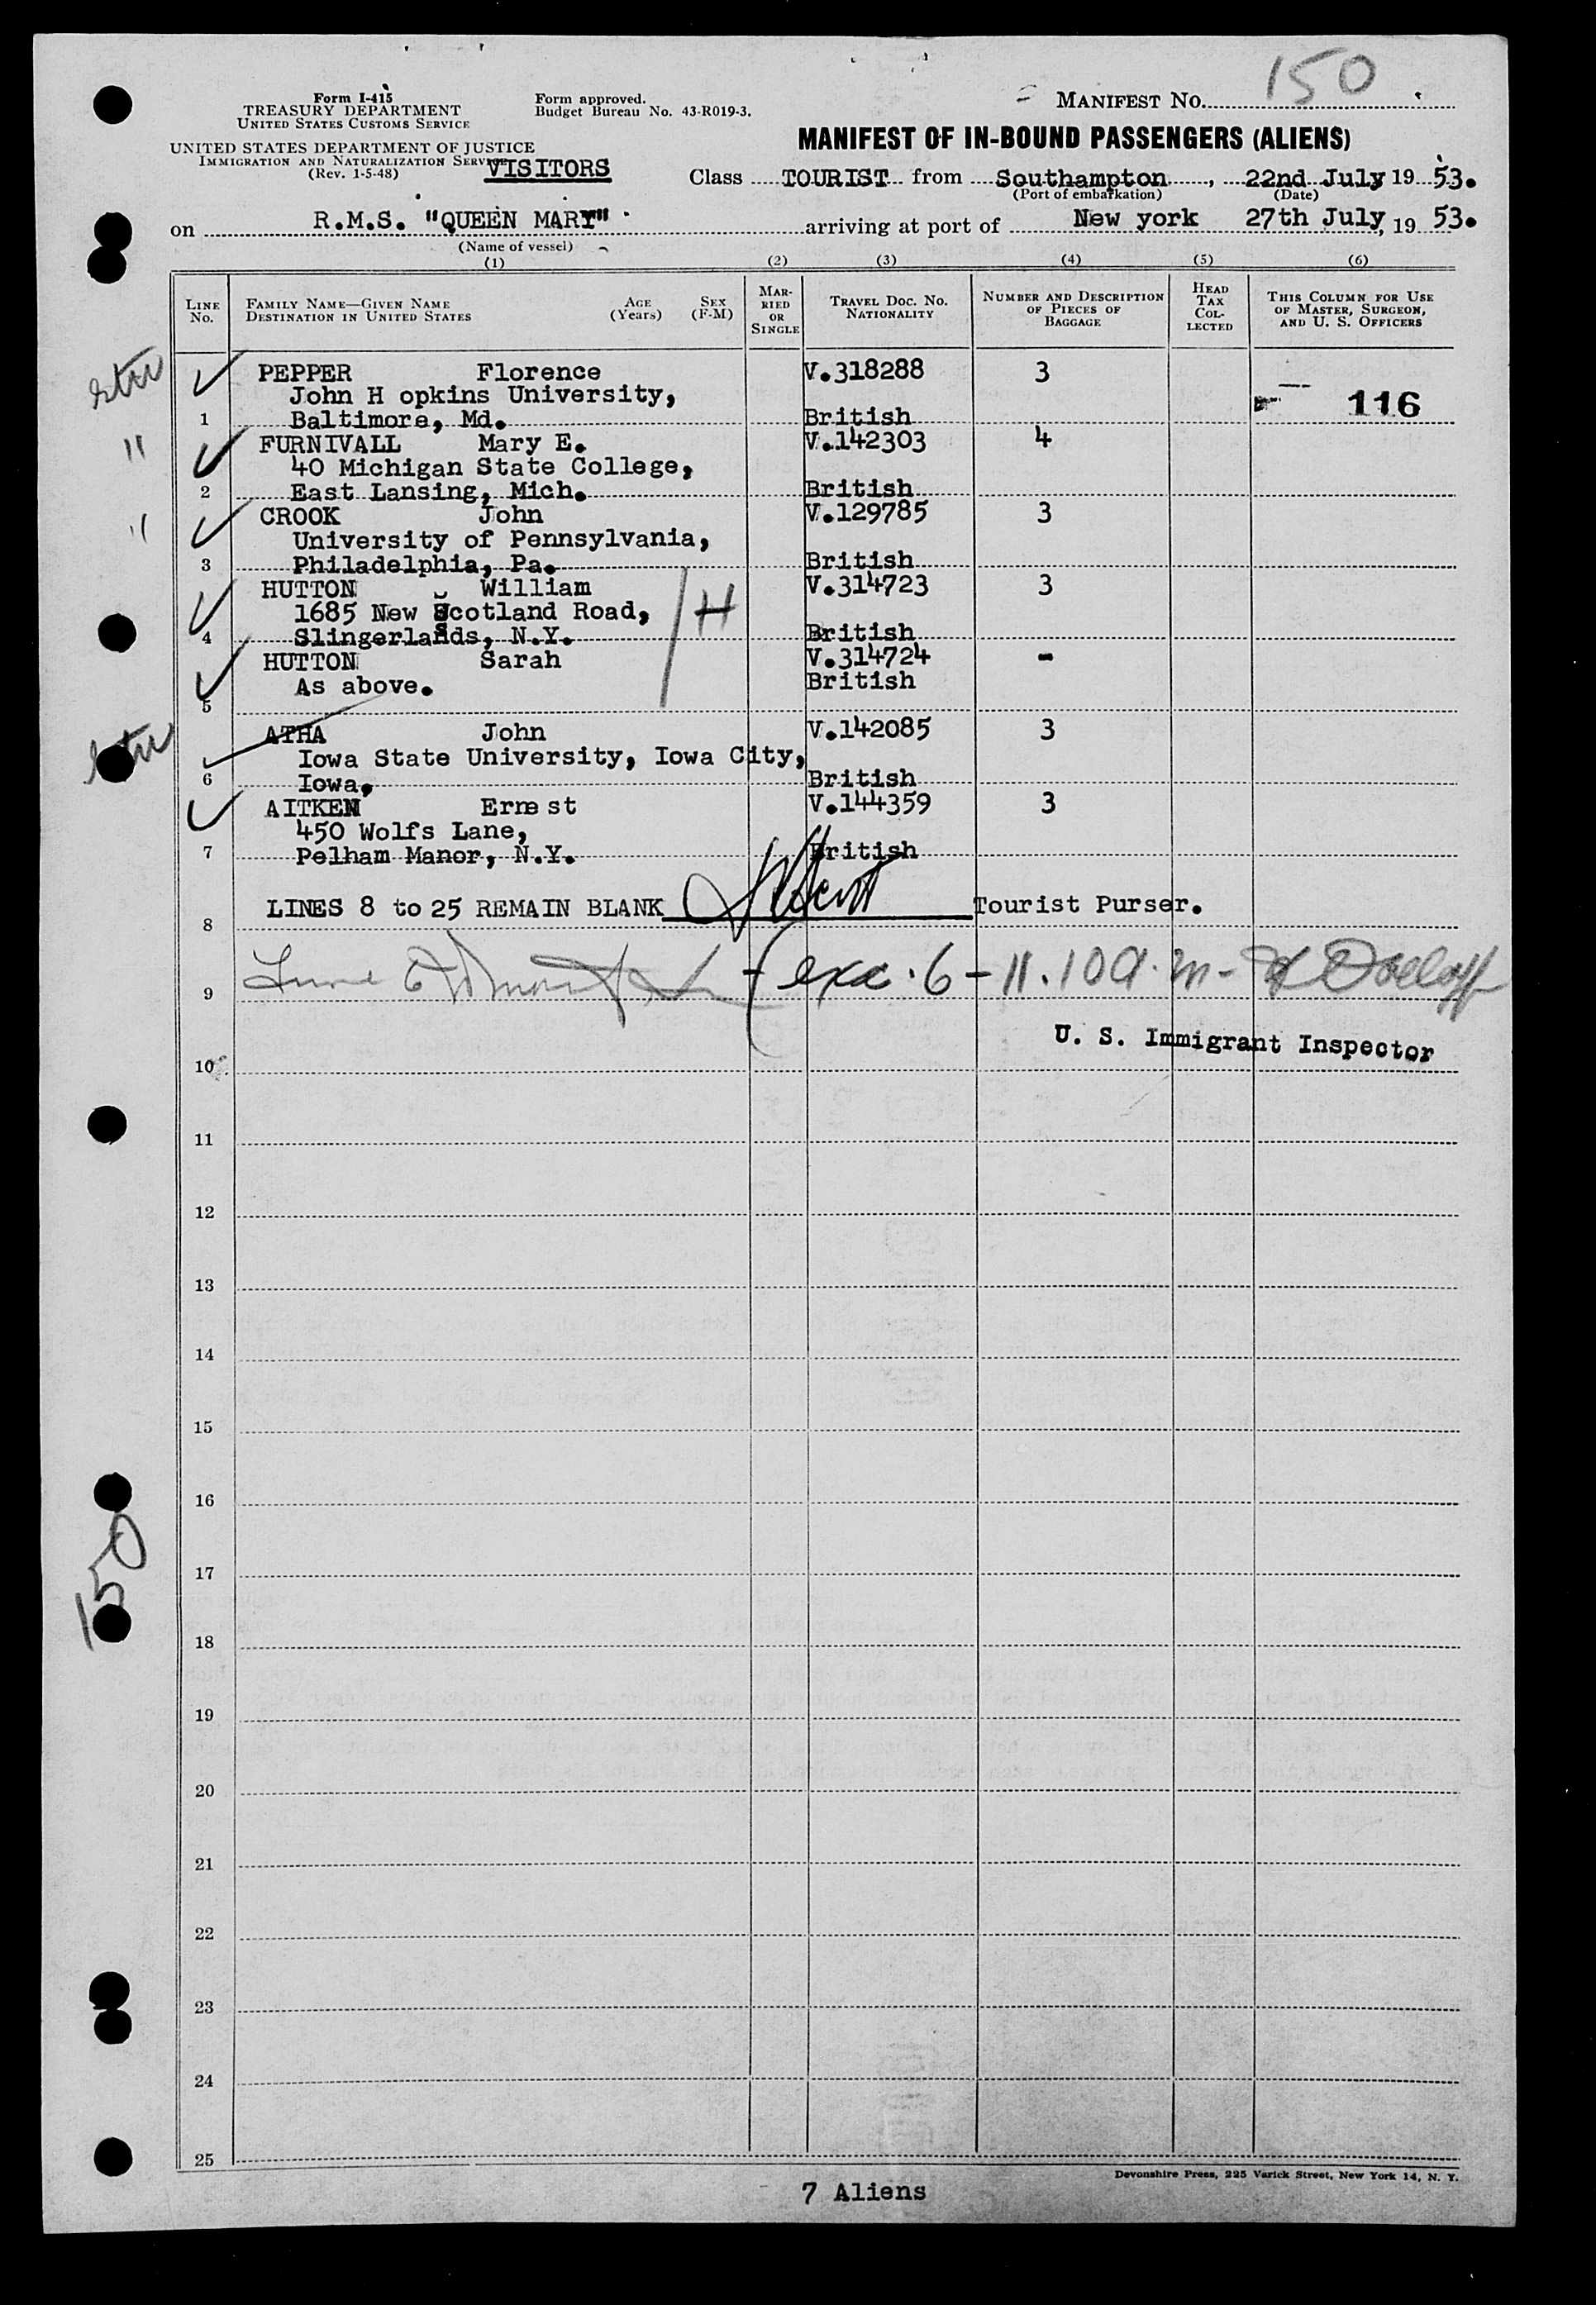 150
Form I-415
TREASURY DEPARTMENT
UNITED STATES CUSTOMS SERVICE
Form approved.
Budget Bureau No. 43-R019-3.
MANIFEST NO.
UNITED STATES DEPARTMENT OF JUSTICE
IMMIGRATION AND NATURALIZATION SERVICE
(Rev. 1-5-48)
VISITORS
MANIFEST OF IN-BOUND PASSENGERS (ALIENS)
Class TOURIST from Southampton, 22nd July 19 53.
(Port of embarkation) (Date)
on R.M.S. "QUEEN MARY" arriving at port of New york 27th July, 19 53.
(Name of vessel)
(1) (2) (3) (4) (5) (6)
LINE No. FAMILY NAME—GIVEN NAME DESTINATION IN UNITED STATES AGE (Years) SEX (F-M) MARRIED OR SINGLE TRAVEL DOC. NO. NATIONALITY NUMBER AND DESCRIPTION OF PIECES OF BAGGAGE HEAD TAX COLLECTED THIS COLUMN FOR USE OF MASTER, SURGEON, AND U. S. OFFICERS
stu PEPPER Florence V.318288 3
John H opkins University, 116
1 Baltimore, Md. British
" FURNIVALL Mary E. V.142303 4
40 Michigan State College,
2 East Lansing, Mich. British
" CROOK John V.129785 3
University of Pennsylvania,
3 Philadelphia, Pa. British
HUTTON William V.314723 3
1685 New Scotland Road, H
4 Slingerlands, N.Y. British
HUTTON Sarah V.314724 -
As above. British
5
stu ATHA John V.142085 3
Iowa State University, Iowa City,
6 Iowa, British
AITKEN Ernest V.144359 3
450 Wolfs Lane,
7 Pelham Manor, N.Y. British
8 LINES 8 to 25 REMAIN BLANK Tourist Purser.
9 exc. 6 - 11.10 a.m -
U. S. Immigrant Inspector
10
11
12
13
14
15
16
150
17
18
19
20
21
22
23
24
25
Devonshire Press, 225 Varick Street, New York 14, N. Y.
7 Aliens